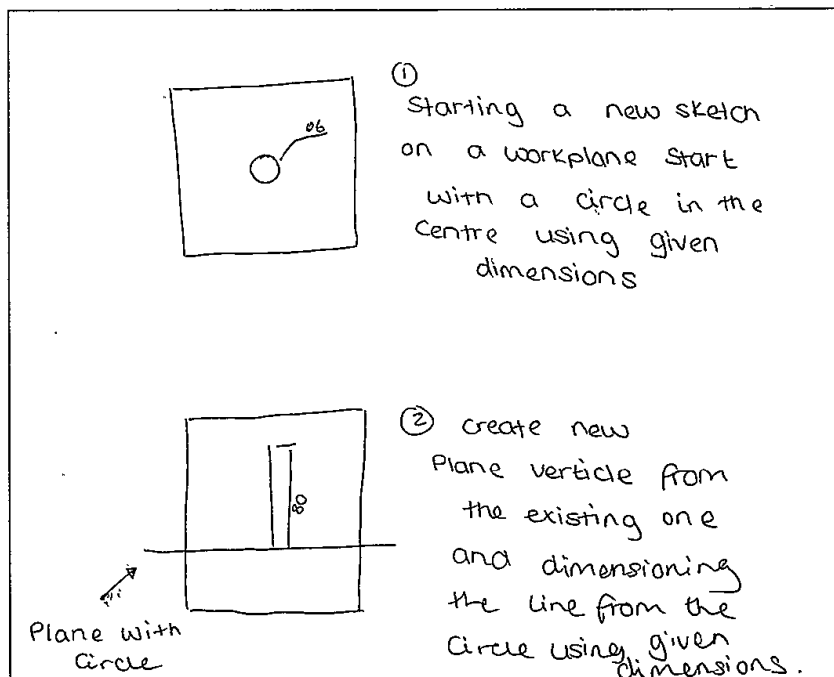 ①
Starting a new sketch
on a workplane start
with a circle in the
centre using given
dimensions
ø6
② create new
Plane verticle from
the existing one
and dimensioning
the line from the
circle using given
dimensions.
80
Plane with
circle